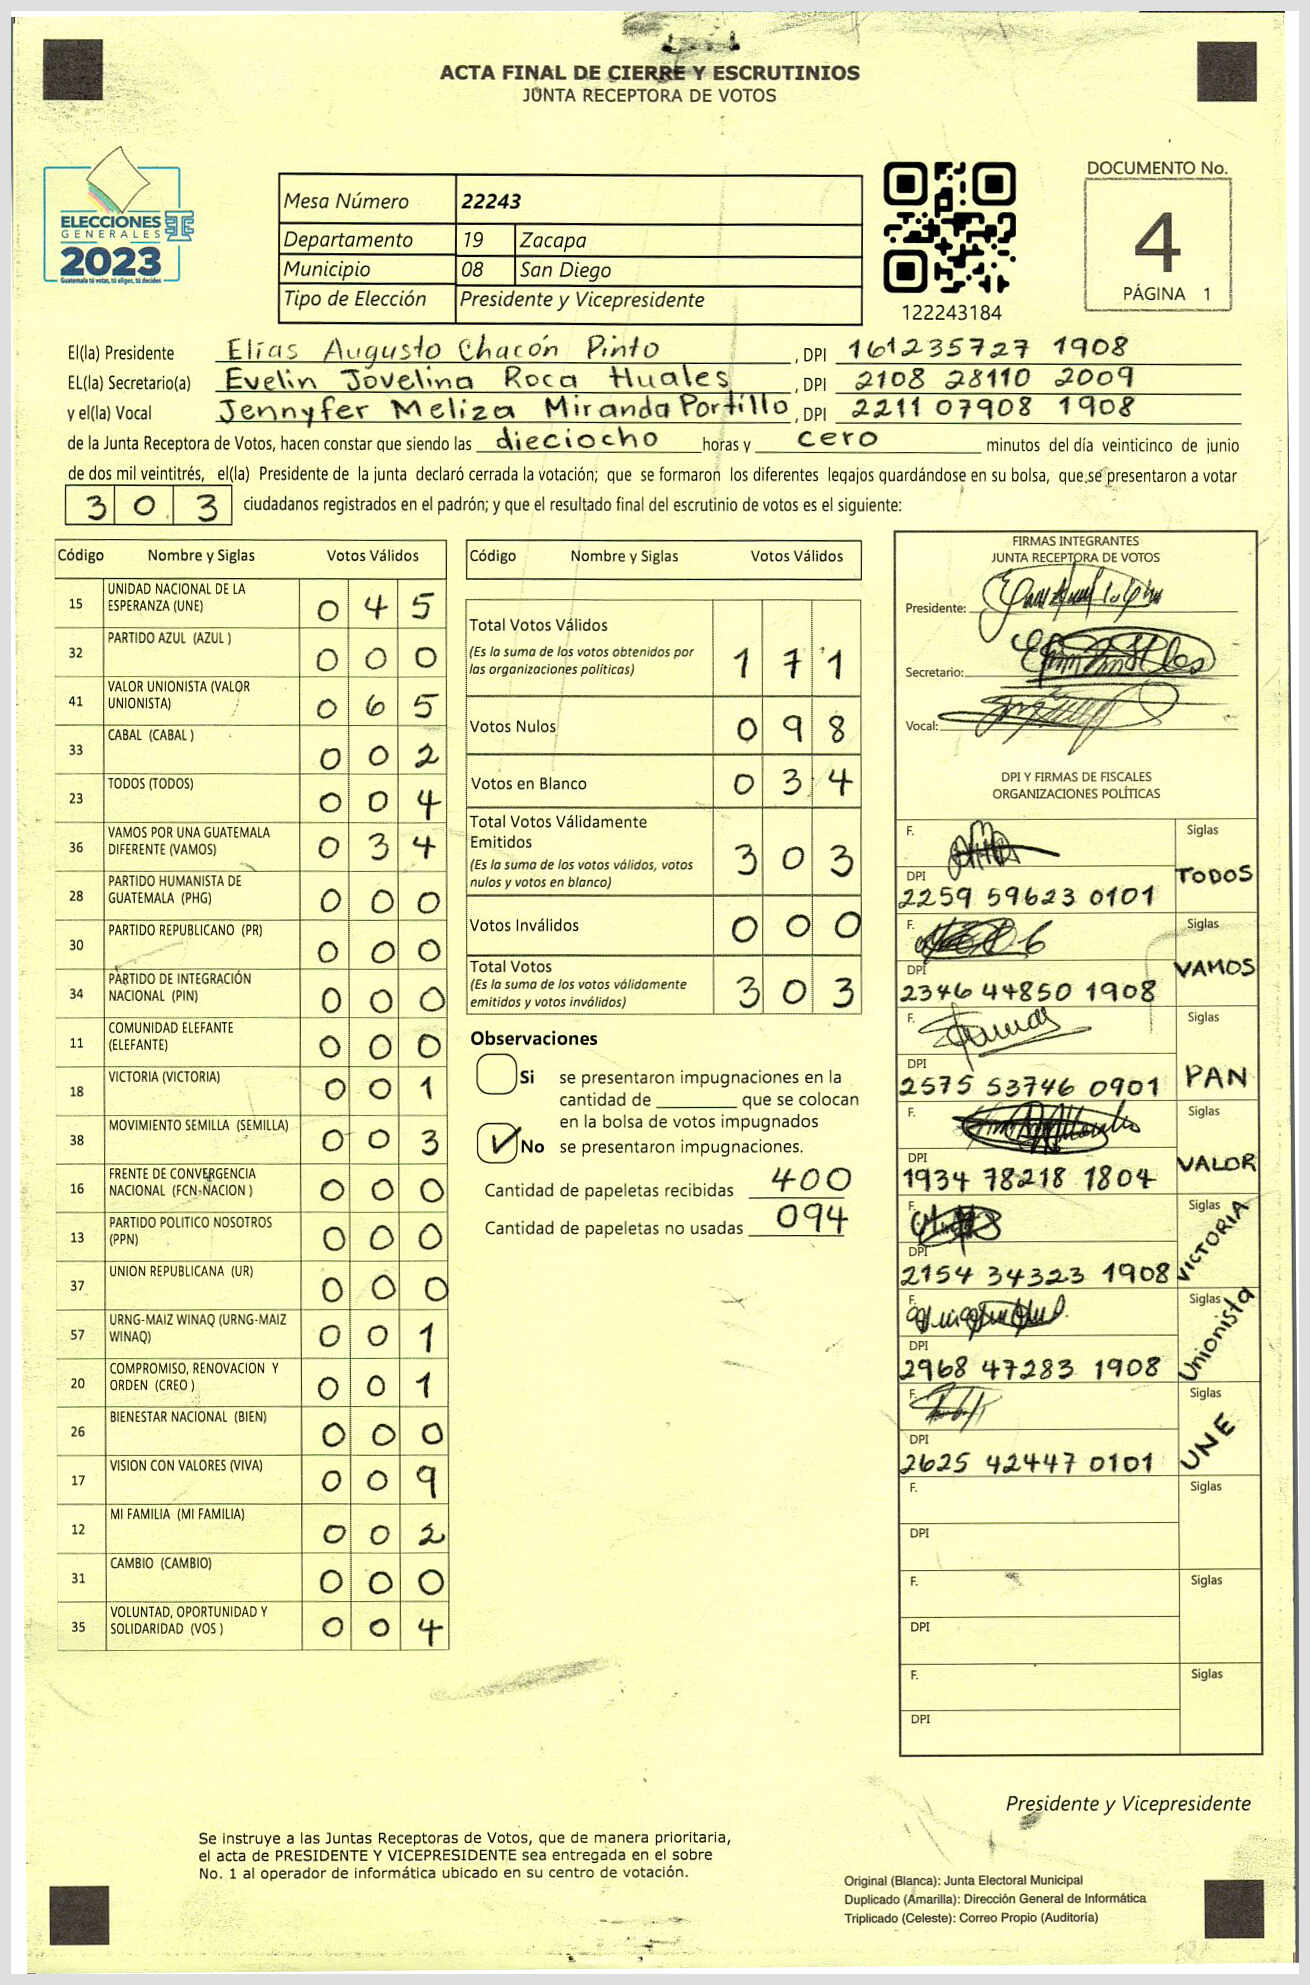 ACTA FINAL DE CIERRE Y ESCRUTINIOS
JUNTA RECEPTORA DE VOTOS
ELECCIONES
GENERALES
2023
Guatemala tú votas, tú eliges, tú decides
Mesa Número 22243
Departamento 19 Zacapa
Municipio 08 San Diego
Tipo de Elección Presidente y Vicepresidente
122243184
DOCUMENTO No.
4
PÁGINA 1
El(la) Presidente Elías Augusto Chacón Pinto , DPI 161235727 1908
EL(la) Secretario(a) Evelin Jovelina Roca Huales , DPI 2108 28110 2009
y el(la) Vocal Jennyfer Meliza Miranda Portillo , DPI 2211 07908 1908
de la Junta Receptora de Votos, hacen constar que siendo las dieciocho horas y cero minutos del día veinticinco de junio
de dos mil veintitrés, el(la) Presidente de la junta declaró cerrada la votación; que se formaron los diferentes legajos quardándose en su bolsa, que se presentaron a votar
303 ciudadanos registrados en el padrón; y que el resultado final del escrutinio de votos es el siguiente:
Código Nombre y Siglas Votos Válidos
15 UNIDAD NACIONAL DE LA ESPERANZA (UNE) 0 4 5
32 PARTIDO AZUL (AZUL ) 0 0 0
41 VALOR UNIONISTA (VALOR UNIONISTA) 0 6 5
33 CABAL (CABAL ) 0 0 2
23 TODOS (TODOS) 0 0 4
36 VAMOS POR UNA GUATEMALA DIFERENTE (VAMOS) 0 3 4
28 PARTIDO HUMANISTA DE GUATEMALA (PHG) 0 0 0
30 PARTIDO REPUBLICANO (PR) 0 0 0
34 PARTIDO DE INTEGRACIÓN NACIONAL (PIN) 0 0 0
11 COMUNIDAD ELEFANTE (ELEFANTE) 0 0 0
18 VICTORIA (VICTORIA) 0 0 1
38 MOVIMIENTO SEMILLA (SEMILLA) 0 0 3
16 FRENTE DE CONVERGENCIA NACIONAL (FCN-NACION ) 0 0 0
13 PARTIDO POLITICO NOSOTROS (PPN) 0 0 0
37 UNION REPUBLICANA (UR) 0 0 0
57 URNG-MAIZ WINAQ (URNG-MAIZ WINAQ) 0 0 1
20 COMPROMISO, RENOVACION Y ORDEN (CREO ) 0 0 1
26 BIENESTAR NACIONAL (BIEN) 0 0 0
17 VISION CON VALORES (VIVA) 0 0 9
12 MI FAMILIA (MI FAMILIA) 0 0 2
31 CAMBIO (CAMBIO) 0 0 0
35 VOLUNTAD, OPORTUNIDAD Y SOLIDARIDAD (VOS ) 0 0 4
Código Nombre y Siglas Votos Válidos
Total Votos Válidos 1 7 1
(Es la suma de los votos obtenidos por
las organizaciones políticas)
Votos Nulos 0 9 8
Votos en Blanco 0 3 4
Total Votos Válidamente
Emitidos 3 0 3
(Es la suma de los votos válidos, votos
nulos y votos en blanco)
Votos Inválidos 0 0 0
Total Votos 3 0 3
(Es la suma de los votos válidamente
emitidos y votos inválidos)
Observaciones
Si se presentaron impugnaciones en la
cantidad de ________ que se colocan
en la bolsa de votos impugnados
No se presentaron impugnaciones.
Cantidad de papeletas recibidas 400
Cantidad de papeletas no usadas 094
FIRMAS INTEGRANTES
JUNTA RECEPTORA DE VOTOS
Presidente:
Secretario:
Vocal:
DPI Y FIRMAS DE FISCALES
ORGANIZACIONES POLÍTICAS
F. Siglas
DPI TODOS
2259 59623 0101
F. Siglas
DPI VAMOS
2346 44850 1908
F. Siglas
DPI PAN
2575 53746 0901
F. Siglas
DPI VALOR
1934 78218 1804
F. Siglas
DPI VICTORIA
2154 34323 1908
F. Siglas
DPI Unionista
2968 47283 1908
F. Siglas
DPI UNE
2625 42447 0101
F. Siglas
DPI
F. Siglas
DPI
F. Siglas
DPI
Presidente y Vicepresidente
Se instruye a las Juntas Receptoras de Votos, que de manera prioritaria,
el acta de PRESIDENTE Y VICEPRESIDENTE sea entregada en el sobre
No. 1 al operador de informática ubicado en su centro de votación.
Original (Blanca): Junta Electoral Municipal
Duplicado (Amarilla): Dirección General de Informática
Triplicado (Celeste): Correo Propio (Auditoría)